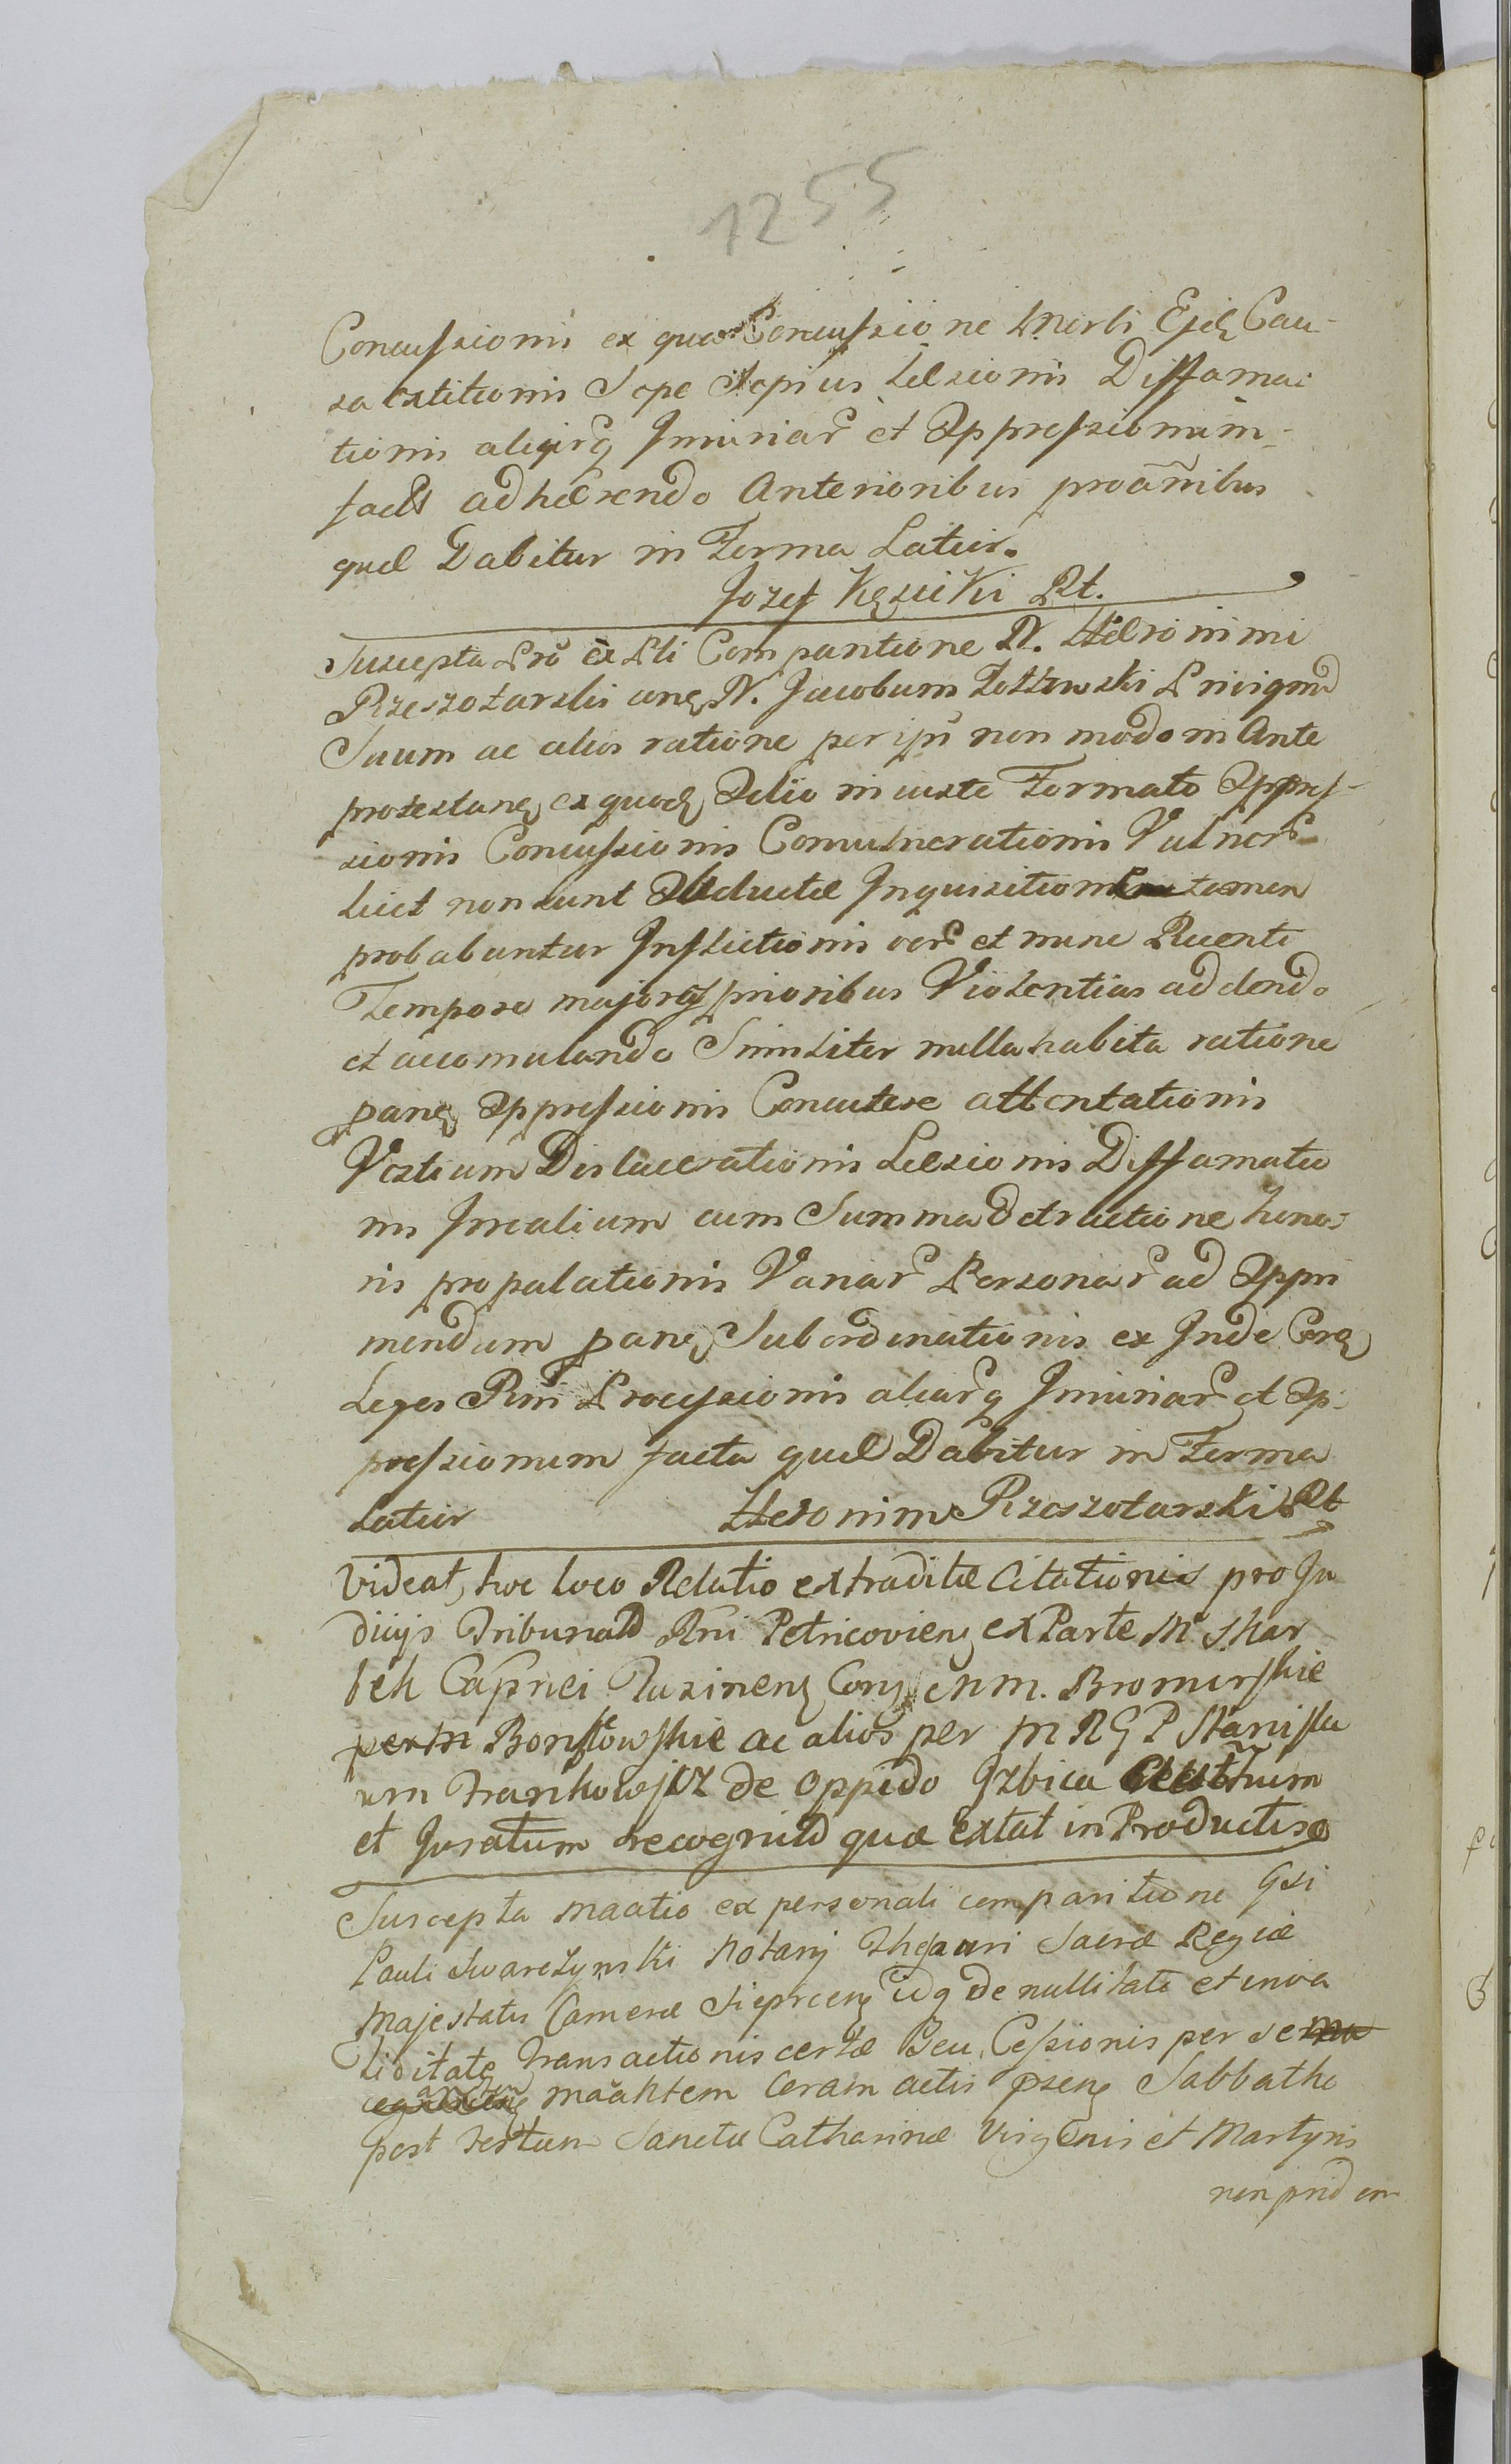 1255
Concussionis ex qua Concussione Morti Ejd Cau-
sa extitionis Sepe Sepius Læsionis Diffama-
tionis aliarq Iniuriar et Oppressionum
facta adhærendo Anterioribus proañibus
quæ Dabitur in Forma Latior.
Jozef Kęsicki Rt.
Suscepta Pro ex Pli Comparitione N. Hieronimi
Rzeszotarski con N. Jacobum Privignū
Suum ac alios ratione per ipū non modo in Ante
protestane ex quod Odio iniuste Formato Oppres-
sionis Concussionis Convulnerationis Vulner
licet non sunt Obductæ Inquisition tamen
probabuntur Inflictionis ver et nunc Recenti
Tempore majores prioribus Violentias addendo
et accomulando Similiter nulla habita ratione
pane Oppressionis Concutere attentationis
Vestium Dislacerationis Læsionis Diffamatio
nis Irrealium cum Summa detractione hono-
ris propalationis Variar Personar ad Oppri
mendum pane Subordinationis ex Inde Con
Leges Rni Processionis aliarq Iniuriar et Op-
pressionum facta quæ Dabitur in Forma
Latior Heronim Rzeszotarski Rt
Videat hoc loco Relatio extraditæ Citationis pro Ju
dicijs Tribunal Rni Petricovien ex Parte M Skar
bek Capnei Conj M M. Bromirskie
per M ac alios per M R G P Stanisla
um de oppido Izbica
et Juratum recognit quæ Extat in Productis
Suscepta Maatio ex personali comparitione Gsi
Pauli Swarczynski Notarij Thesauri Sacræ Regiæ
Majestatis Cameræ idq de nullitate et inva
liditate Transactionis certæ seu Cessionis per se
maañtem Coram actis psen Sabbatho
post Festum Sanctæ Catharinæ Virginis et Martyris
non prid em